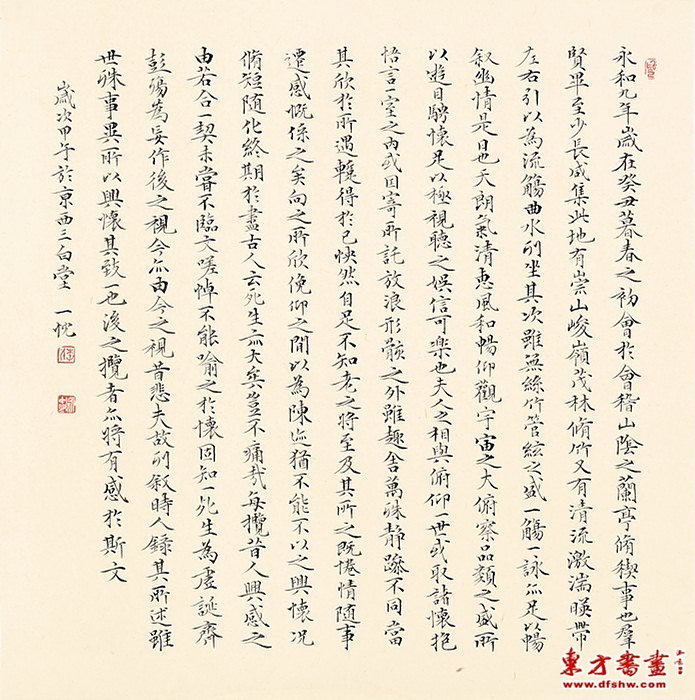 永和九年歲在癸丑暮春之初會於會稽山陰之蘭亭脩稧事也羣
賢畢至少長咸集此地有崇山峻嶺茂林脩竹又有清流激湍暎帶
左右引以為流觴曲水列坐其次雖無絲竹管絃之盛一觴一詠亦足以暢
叙幽情是日也天朗氣清惠風和暢仰觀宇宙之大俯察品類之盛所
以遊目騁懷足以極視聽之娛信可樂也夫人之相與俯仰一世或取諸懷抱
悟言一室之內或因寄所託放浪形骸之外雖趣舍萬殊靜躁不同當
其欣於所遇蹔得於己怏然自足不知老之將至及其所之既惓情隨事
遷感慨係之矣向之所欣俛仰之閒以為陳迹猶不能不以之興懷況
脩短隨化終期於盡古人云死生亦大矣豈不痛哉每攬昔人興感之
由若合一契未嘗不臨文嗟悼不能喻之於懷固知一死生為虛誕齊
彭殤為妄作後之視今亦由今之視昔悲夫故列叙時人錄其所述雖
世殊事異所以興懷其致一也後之攬者亦將有感於斯文
歲次甲午於京西三白堂 一忱
東方書畫
www.dfshw.com